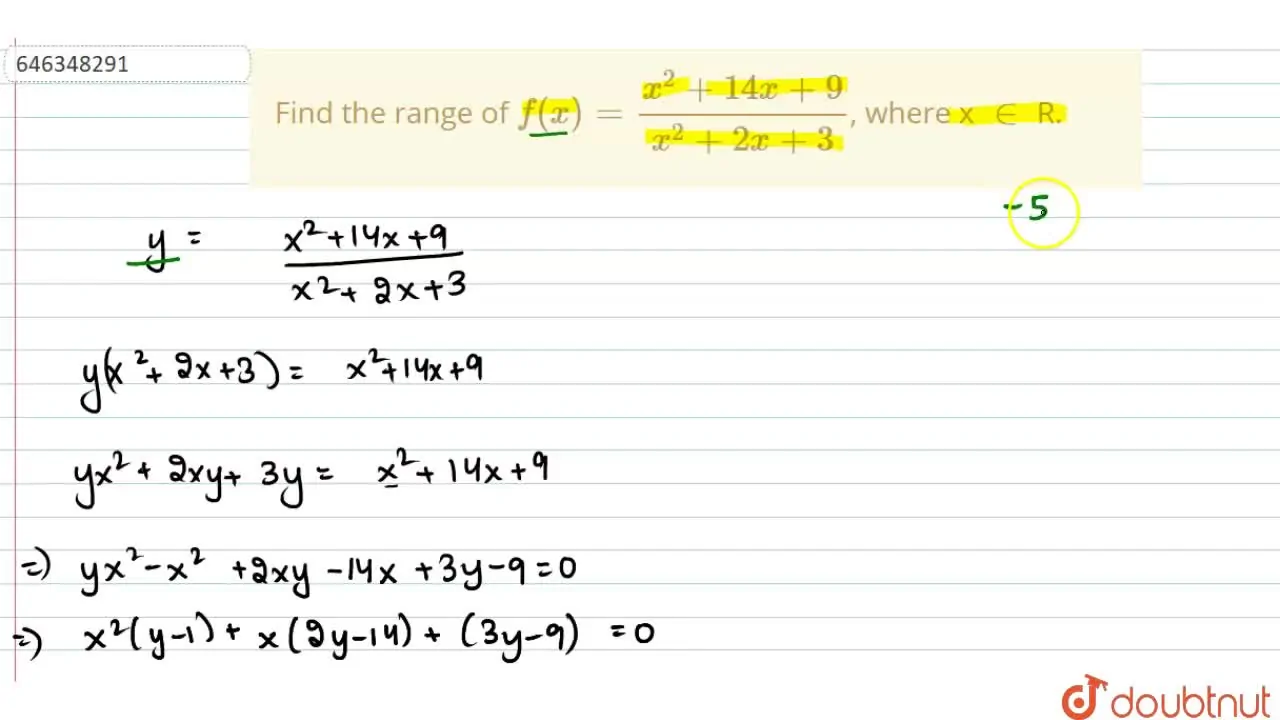 646348291
Find the range of f(x) = \frac{x^2 + 14x + 9}{x^2 + 2x + 3}, where x ∈ R.
-5
y = \frac{x^2+14x+9}{x^2+2x+3}
y(x^2+2x+3) = x^2+14x+9
yx^2+2xy+3y = x^2+14x+9
=) yx^2-x^2+2xy-14x+3y-9=0
=) x^2(y-1)+x(2y-14)+(3y-9)=0
doubtnut